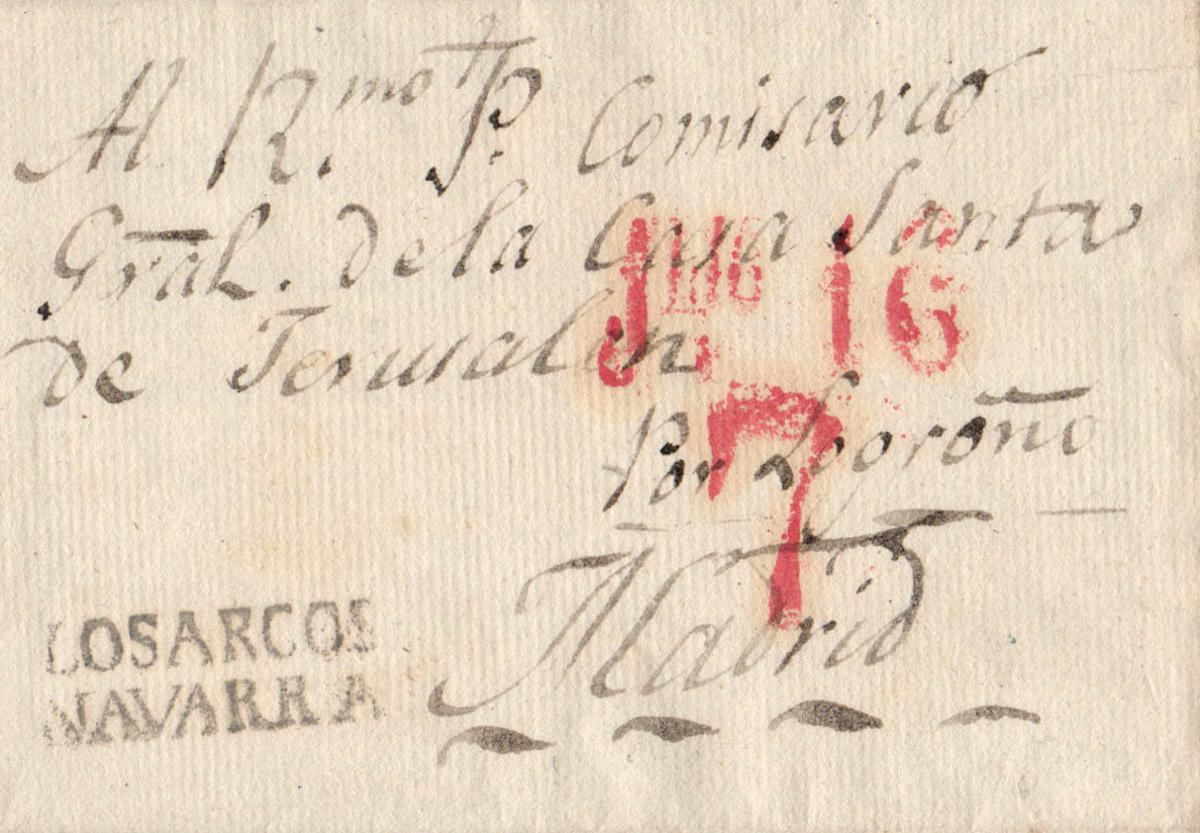 Al R.mo P. Comisario
Gral. de la Casa Santa
de Jerusalen
Por Logroño
Madrid
16
7
LOS ARCOS
NAVARRA